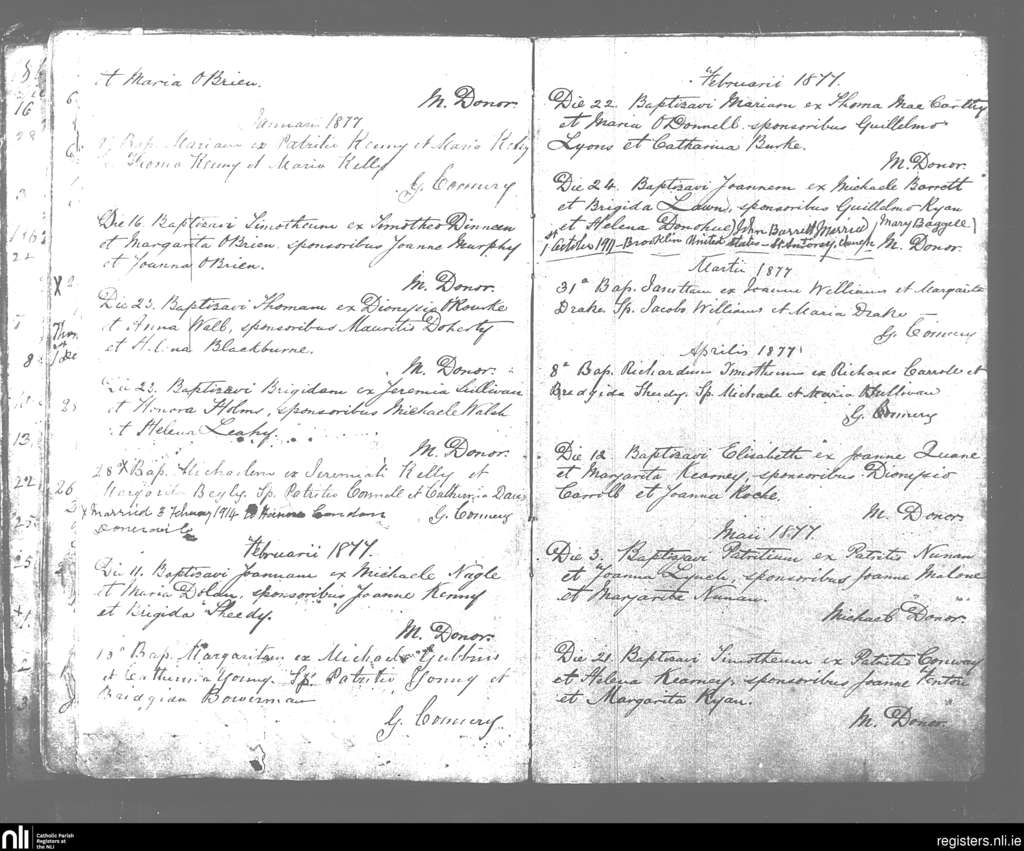 et Maria O'Brien.
M. Donor.
Januarii 1877
Bap. Mariam ex Patritio Kenny et Maria Kelly
Thoma Kenny et Maria Kelly
G. Connery
Die 16. Baptizavi Timotheum ex Timotheo Dinneen
et Margarita O'Brien, sponsoribus Joanne Murphy
et Joanna O'Brien.
M. Donor.
Die 23. Baptizavi Thomam ex Dionysio O'Rourke
et Anna Wall, sponsoribus Mauritio Doherty
et Helena Blackburne.
M. Donor.
Die 23. Baptizavi Brigidam ex Jeremia Sullivan
et Honora Holms, sponsoribus Michaele Walsh
et Helena Leahy.
M. Donor.
28ª Bap. Michaelem ex Jeremiah Kelly et
Margarita Begly. Sp. Patritio Connell et Catherinia
x Married 3 February 1914 London
G. Connery
Februarii 1877.
Die 11. Baptizavi Joannam ex Michaele Nagle
et Maria Dolan, sponsoribus Joanne Kenny
et Brigida Sheedy.
M. Donor.
13ª Bap. Margaritam ex Michaele Gubbins
et Catherinia Young. Sp. Patritio Young et
Bridgida Bowerman
G. Connery
Februarii 1877.
Die 22. Baptizavi Mariam ex Thoma Mac Carthy
et Maria O'Donnell, sponsoribus Guillelmo
Lyons et Catharina Burke.
M. Donor.
Die 24. Baptizavi Joannem ex Michaele Barrett
et Brigida Lawn, sponsoribus Guillelmo Ryan
et Helena Donohue) John Barrett Married (Mary Baggell)
1st October 1911 - Brooklin United States - St Antony, church M. Donor.
Martii 1877
31ª Bap. ex Joanne Williams et Margarita
Drake Sp. Jacobo Williams et Maria Drake
G. Connery
Aprilis 1877
8ª Bap. Richardum Timotheum ex Richardo Carroll et
Bredgida Sheedy. Sp. Michaele et Maria O'Sullivan
G. Connery
Die 12 Baptizavi Elisabeth ex Joanne Quane
et Margarita Kearney, sponsoribus Dionysio
Carroll et Joanna Roche.
M. Donor.
Maii 1877.
Die 3. Baptizavi Patritium ex Patritio Nunan
et Joanna Lynch, sponsoribus Joanne Malone
et Margarita Nunan.
Michael Donor.
Die 21. Baptizavi Timotheum ex Patritio Conway
et Helena Kearney, sponsoribus Joanne Fenton
et Margarita Ryan.
M. Donor.
nli
Catholic Parish
Registers at
the NLI
registers.nli.ie